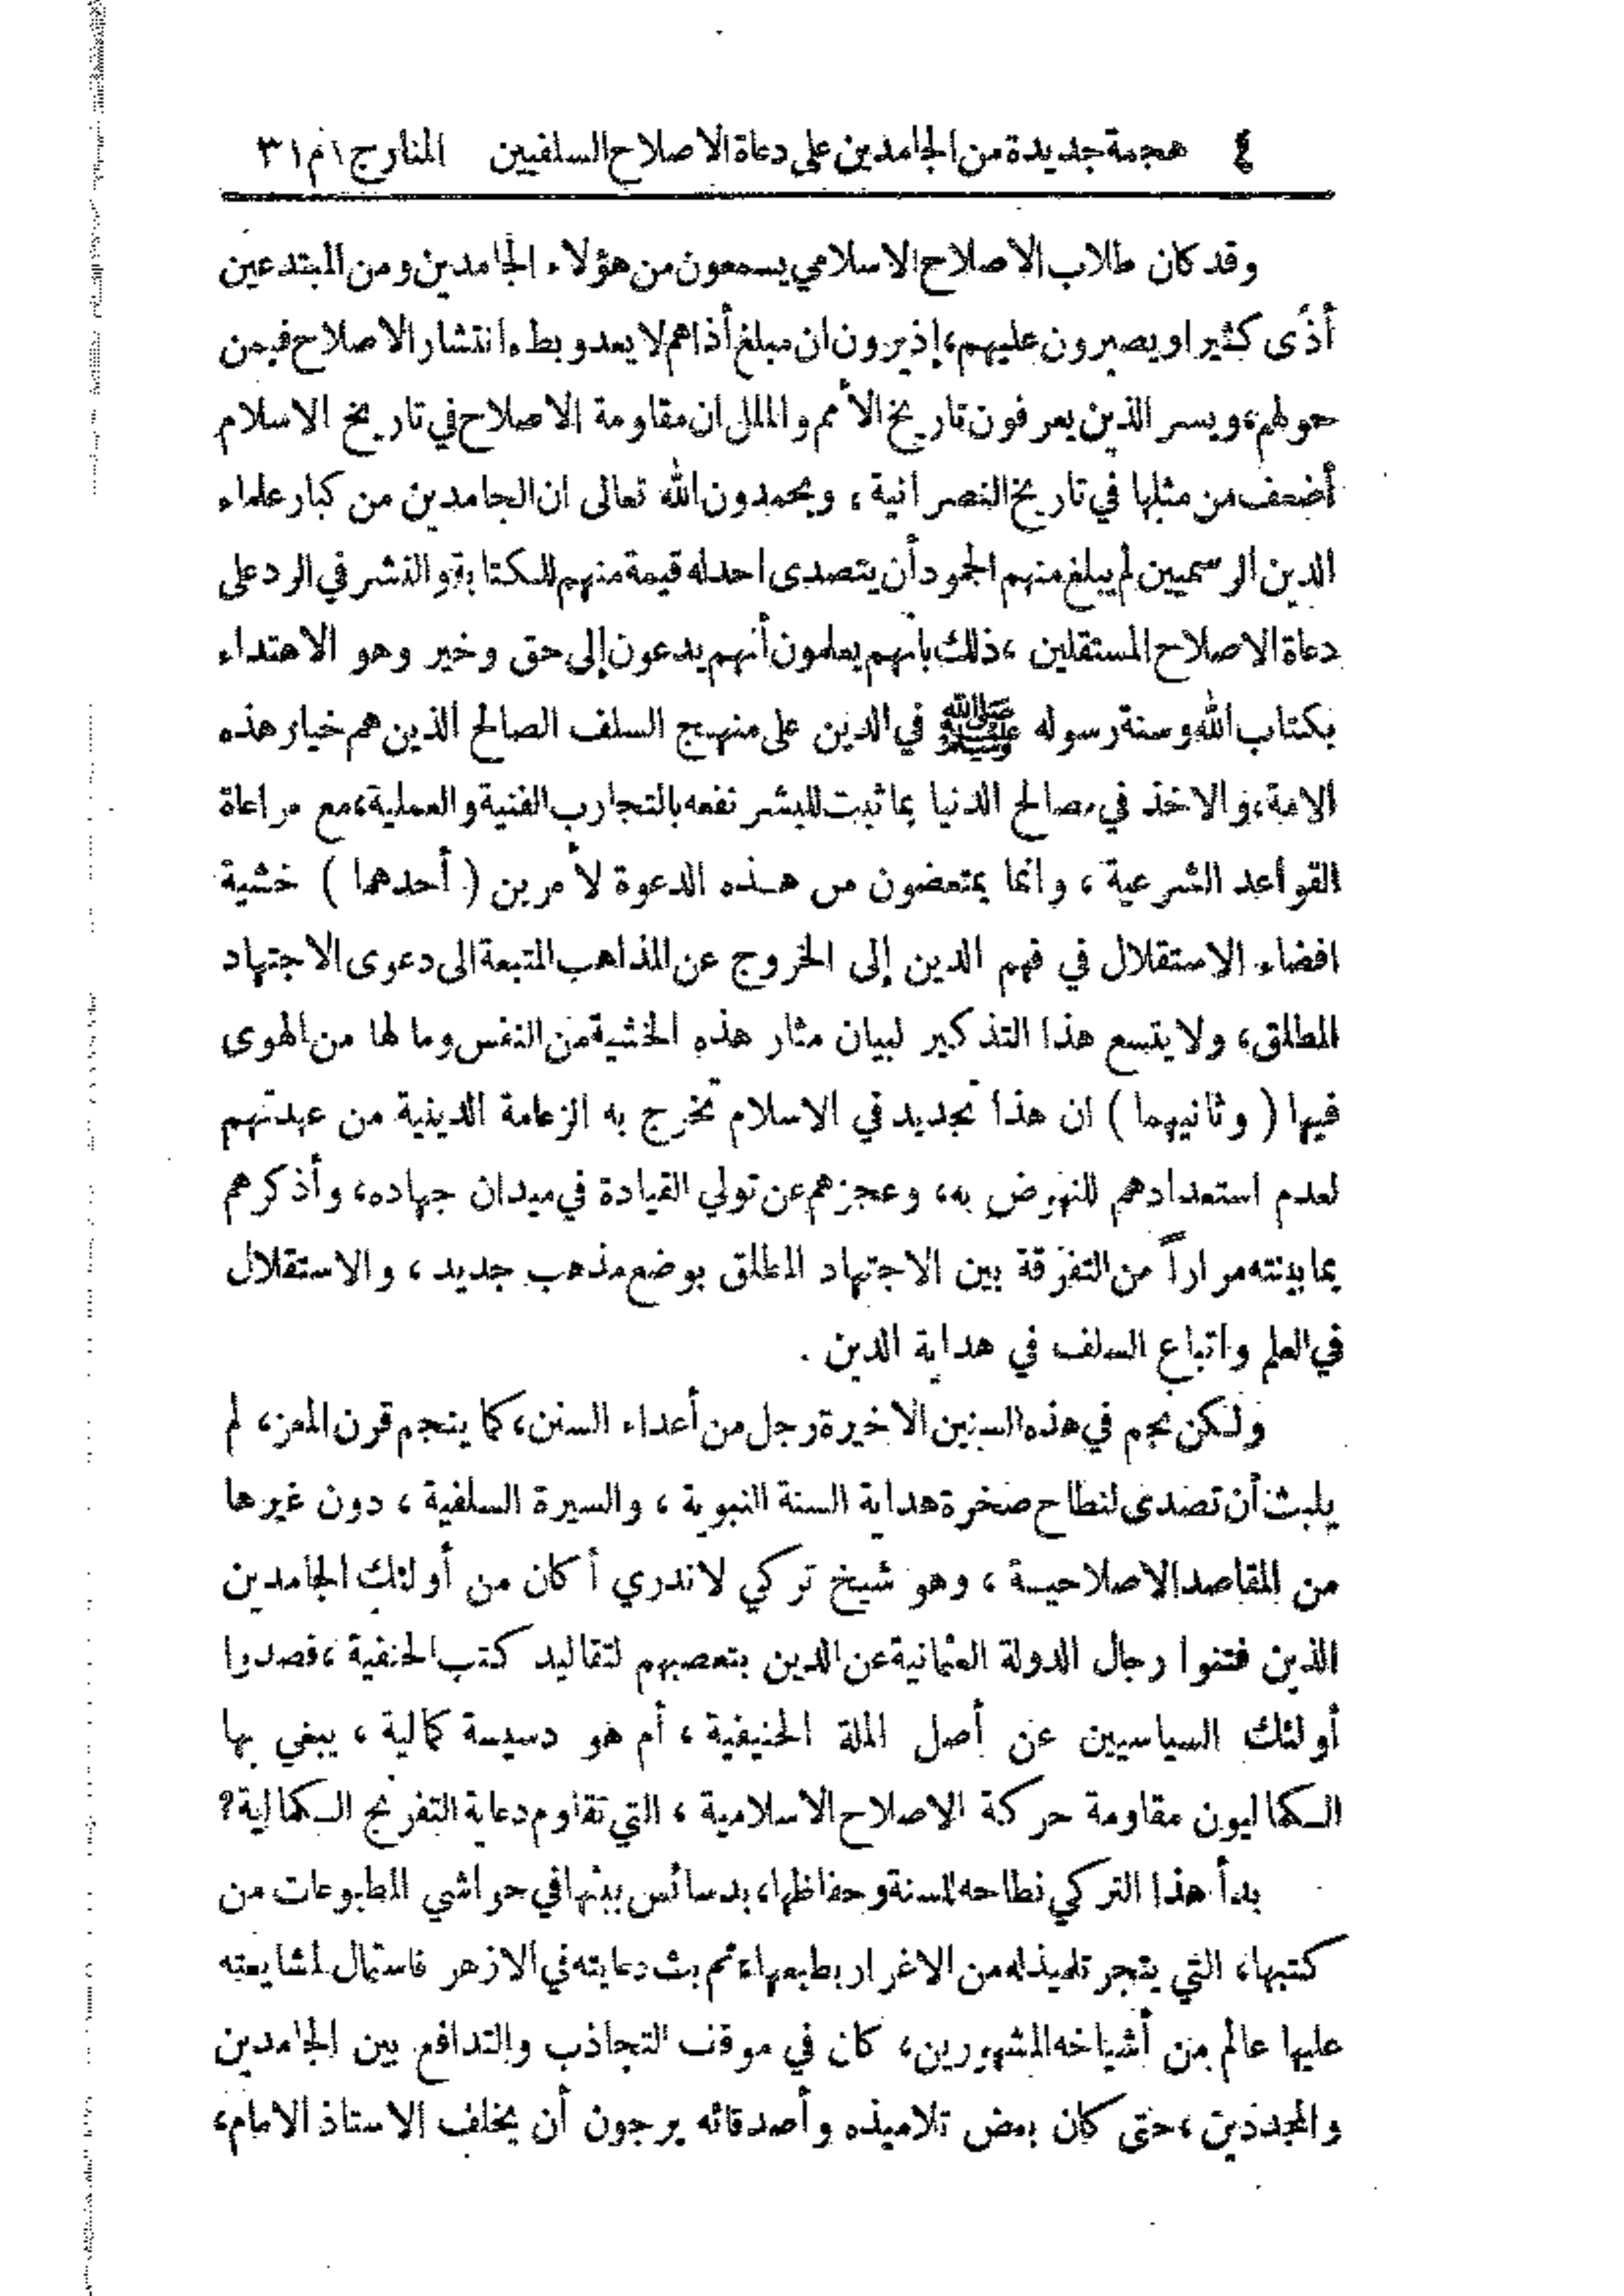 ٤ هجمة جديدة من الجامدين على دعاة الاصلاح السلفيين المنار ج ١ م ٣١
وقد كان طلاب الاصلاح الاسلامي يسمعون من هؤلاء الجامدين ومن المبتدعين
أذًى كثيرا ويصبرون عليهم، إذ يرون ان مبلغ أذاهم لا يعدو بطء انتشار الاصلاح فيمن
حولهم، ويسر الذين يعرفون تاريخ الأمم والملل ان مقاومة الاصلاح في تاريخ الاسلام
أضعف من مثلها في تاريخ النصرانية ، ويحمدون الله تعالى ان الجامدين من كبار علماء
الدين الرسميين لم يبلغ منهم الجمود أن يتصدى احد له قيمة منهم للكتابة والنشر في الرد على
دعاة الاصلاح المستقلين ، ذلك بانهم يعلمون أنهم يدعون إلى حق وخير وهو الاهتداء
بكتاب الله وسنة رسوله ﷺ في الدين على منهج السلف الصالح الذين هم خيار هذه
الامة، والاخذ في مصالح الدنيا بما ثبت للبشر نفعه بالتجارب الفنية والعملية، مع مراعاة
القواعد الشرعية ، وانما يمتعضون من هذه الدعوة لأمرين ( أحدهما ) خشية
افضاء الاستقلال في فهم الدين إلى الخروج عن المذاهب المتبعة الى دعوى الاجتهاد
المطلق، ولا يتسع هذا التذكير لبيان مثار هذه الخشية من النفس وما لها من الهوى
فيها ( وثانيهما ) ان هذا تجديد في الاسلام تخرج به الزعامة الدينية من عهدتهم
لعدم استعدادهم للنهوض به، وعجزهم عن تولي القيادة في ميدان جهاده، وأذكرهم
بما بينته مراراً من التفرقة بين الاجتهاد المطلق بوضع مذهب جديد ، والاستقلال
في العلم واتباع السلف في هداية الدين .
ولكن نجم في هذه السنين الاخيرة رجل من أعداء السنن، كما ينجم قرن المعز، لم
يلبث أن تصدى لنطاح صخرة هداية السنة النبوية ، والسيرة السلفية ، دون غيرها
من المقاصد الاصلاحية ، وهو شيخ تركي لا ندري أكان من أولئك الجامدين
الذين فتنوا رجال الدولة العثمانية عن الدين بتعصبهم لتقاليد كتب الحنفية ، فصدوا
أولئك السياسيين عن أصل الملة الحنيفية ، أم هو دسيسة كمالية ، يبغي بها
الكماليون مقاومة حركة الاصلاح الاسلامية ، التي تقاوم دعاية التفرنج الكمالية؟
بدأ هذا التركي نطاحه للسنة وحفاظها، بدسائس بثها في حواشي المطبوعات من
كتبها، التي يتجر تلميذ له من الاغرار بطبعها، ثم بث دعايته في الازهر فاستمال لمشايعته
عليها عالم من أشياخه المشهورين، كان في موقف التجاذب والتدافع بين الجامدين
والمجددين ، حتى كان بعض تلاميذه وأصدقائه يرجون أن يخلف الاستاذ الامام،